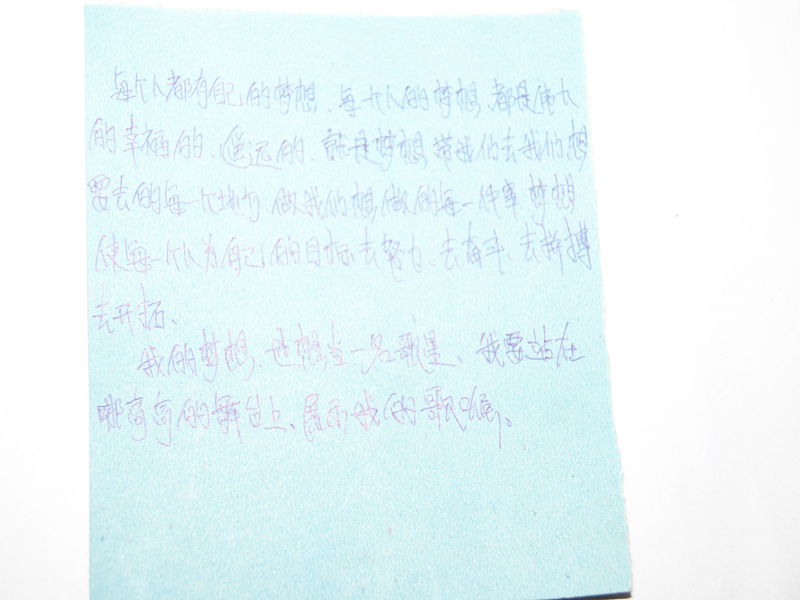 每个人都有自己的梦想、每一个人的梦想、都是伟大
的幸福的、遥远的、就是梦想、带我们去我们想
要去的每一个地方、做我们想做的每一件事、梦想
使每一个人为自己的目标去努力、去奋斗、去拼搏
去开拓、
我的梦想、是想当一名歌星、我要站在
哪高高的舞台上、展示我的歌喉。